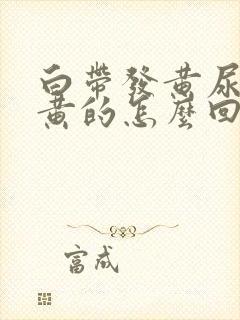 白帶發黃尿
黃的怎麼回
富成